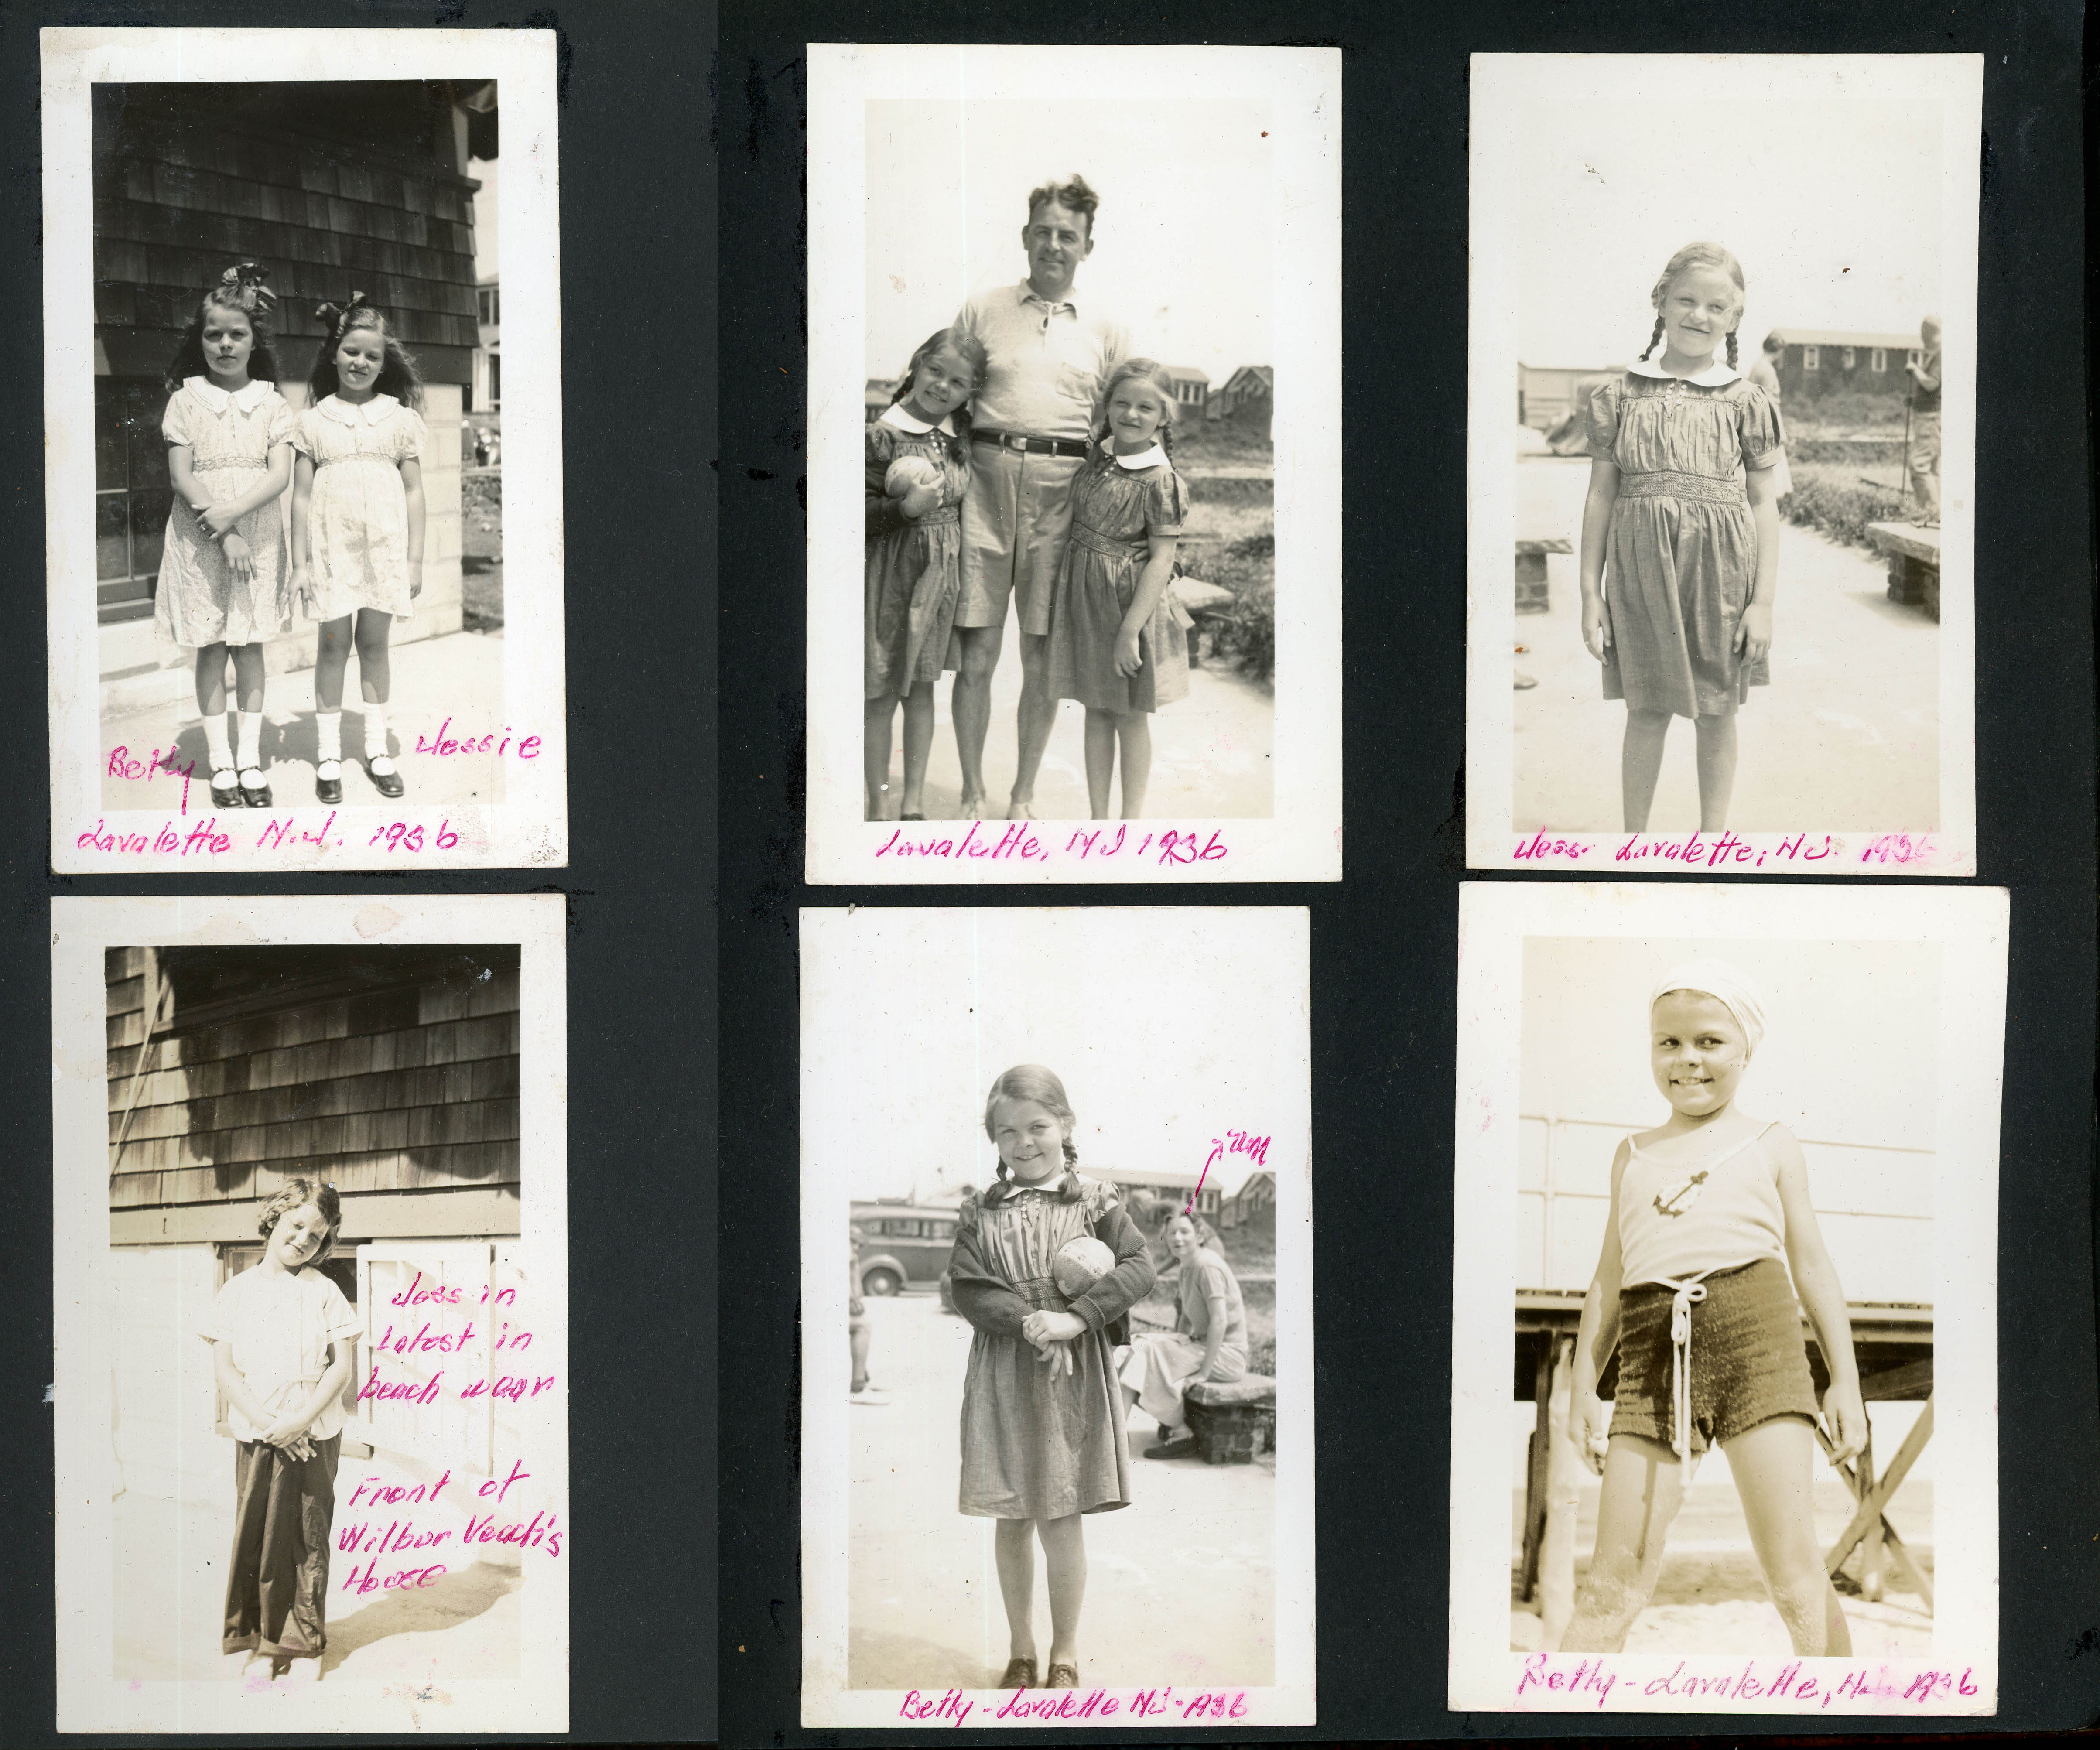 Betty
Jessie
Lavalette N.J. 1936
Lavalette, NJ 1936
Jess. Lavalette, NJ. 1936
Jess in
Latest in
beach wear
Front of
Wilbur Veach's
House
Betty - Lavalette NJ - 1936
Betty - Lavalette, NJ. 1936